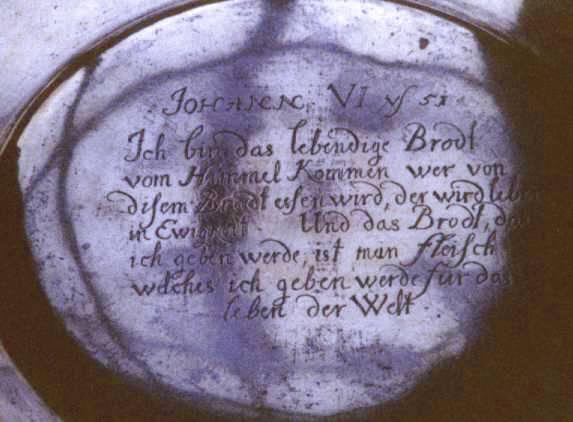 JOHANN, VI vs 51
Ich bin das lebendige Brodt
vom Himmel Kommen wer von
disem Brodt essen wird, der wird leben
in Ewigkeit Und das Brodt, das
ich geben werde, ist man fleisch
welches ich geben werde für das
leben der Welt